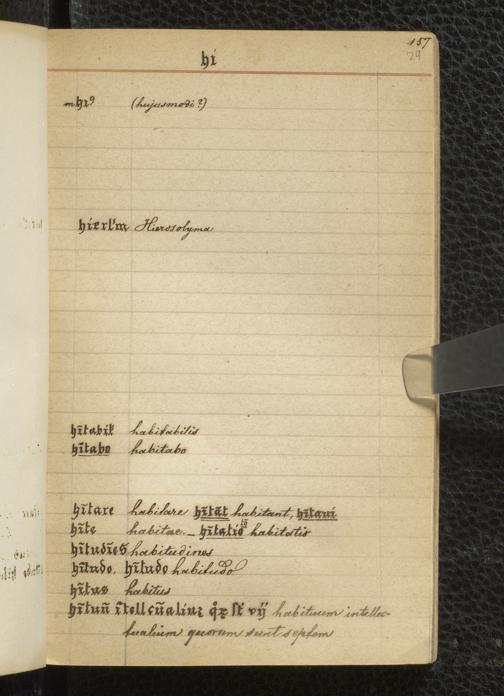 157
29
hi
mhi⁹ (hujusmodi?)
hierl'm Hierosolyma
hītabil' habitabilis
hītabo habitabo
hītare habitare hītāt habitant, hītaui
hīte habitae – hītatio habitatio
hītudīes habitudines
hītudo. hītudo habitudo
hītus habitus
hītuū ītell'cūaliuz q̊ꝝ st̄ vij habituum intellec-
tualium quorum sunt septem